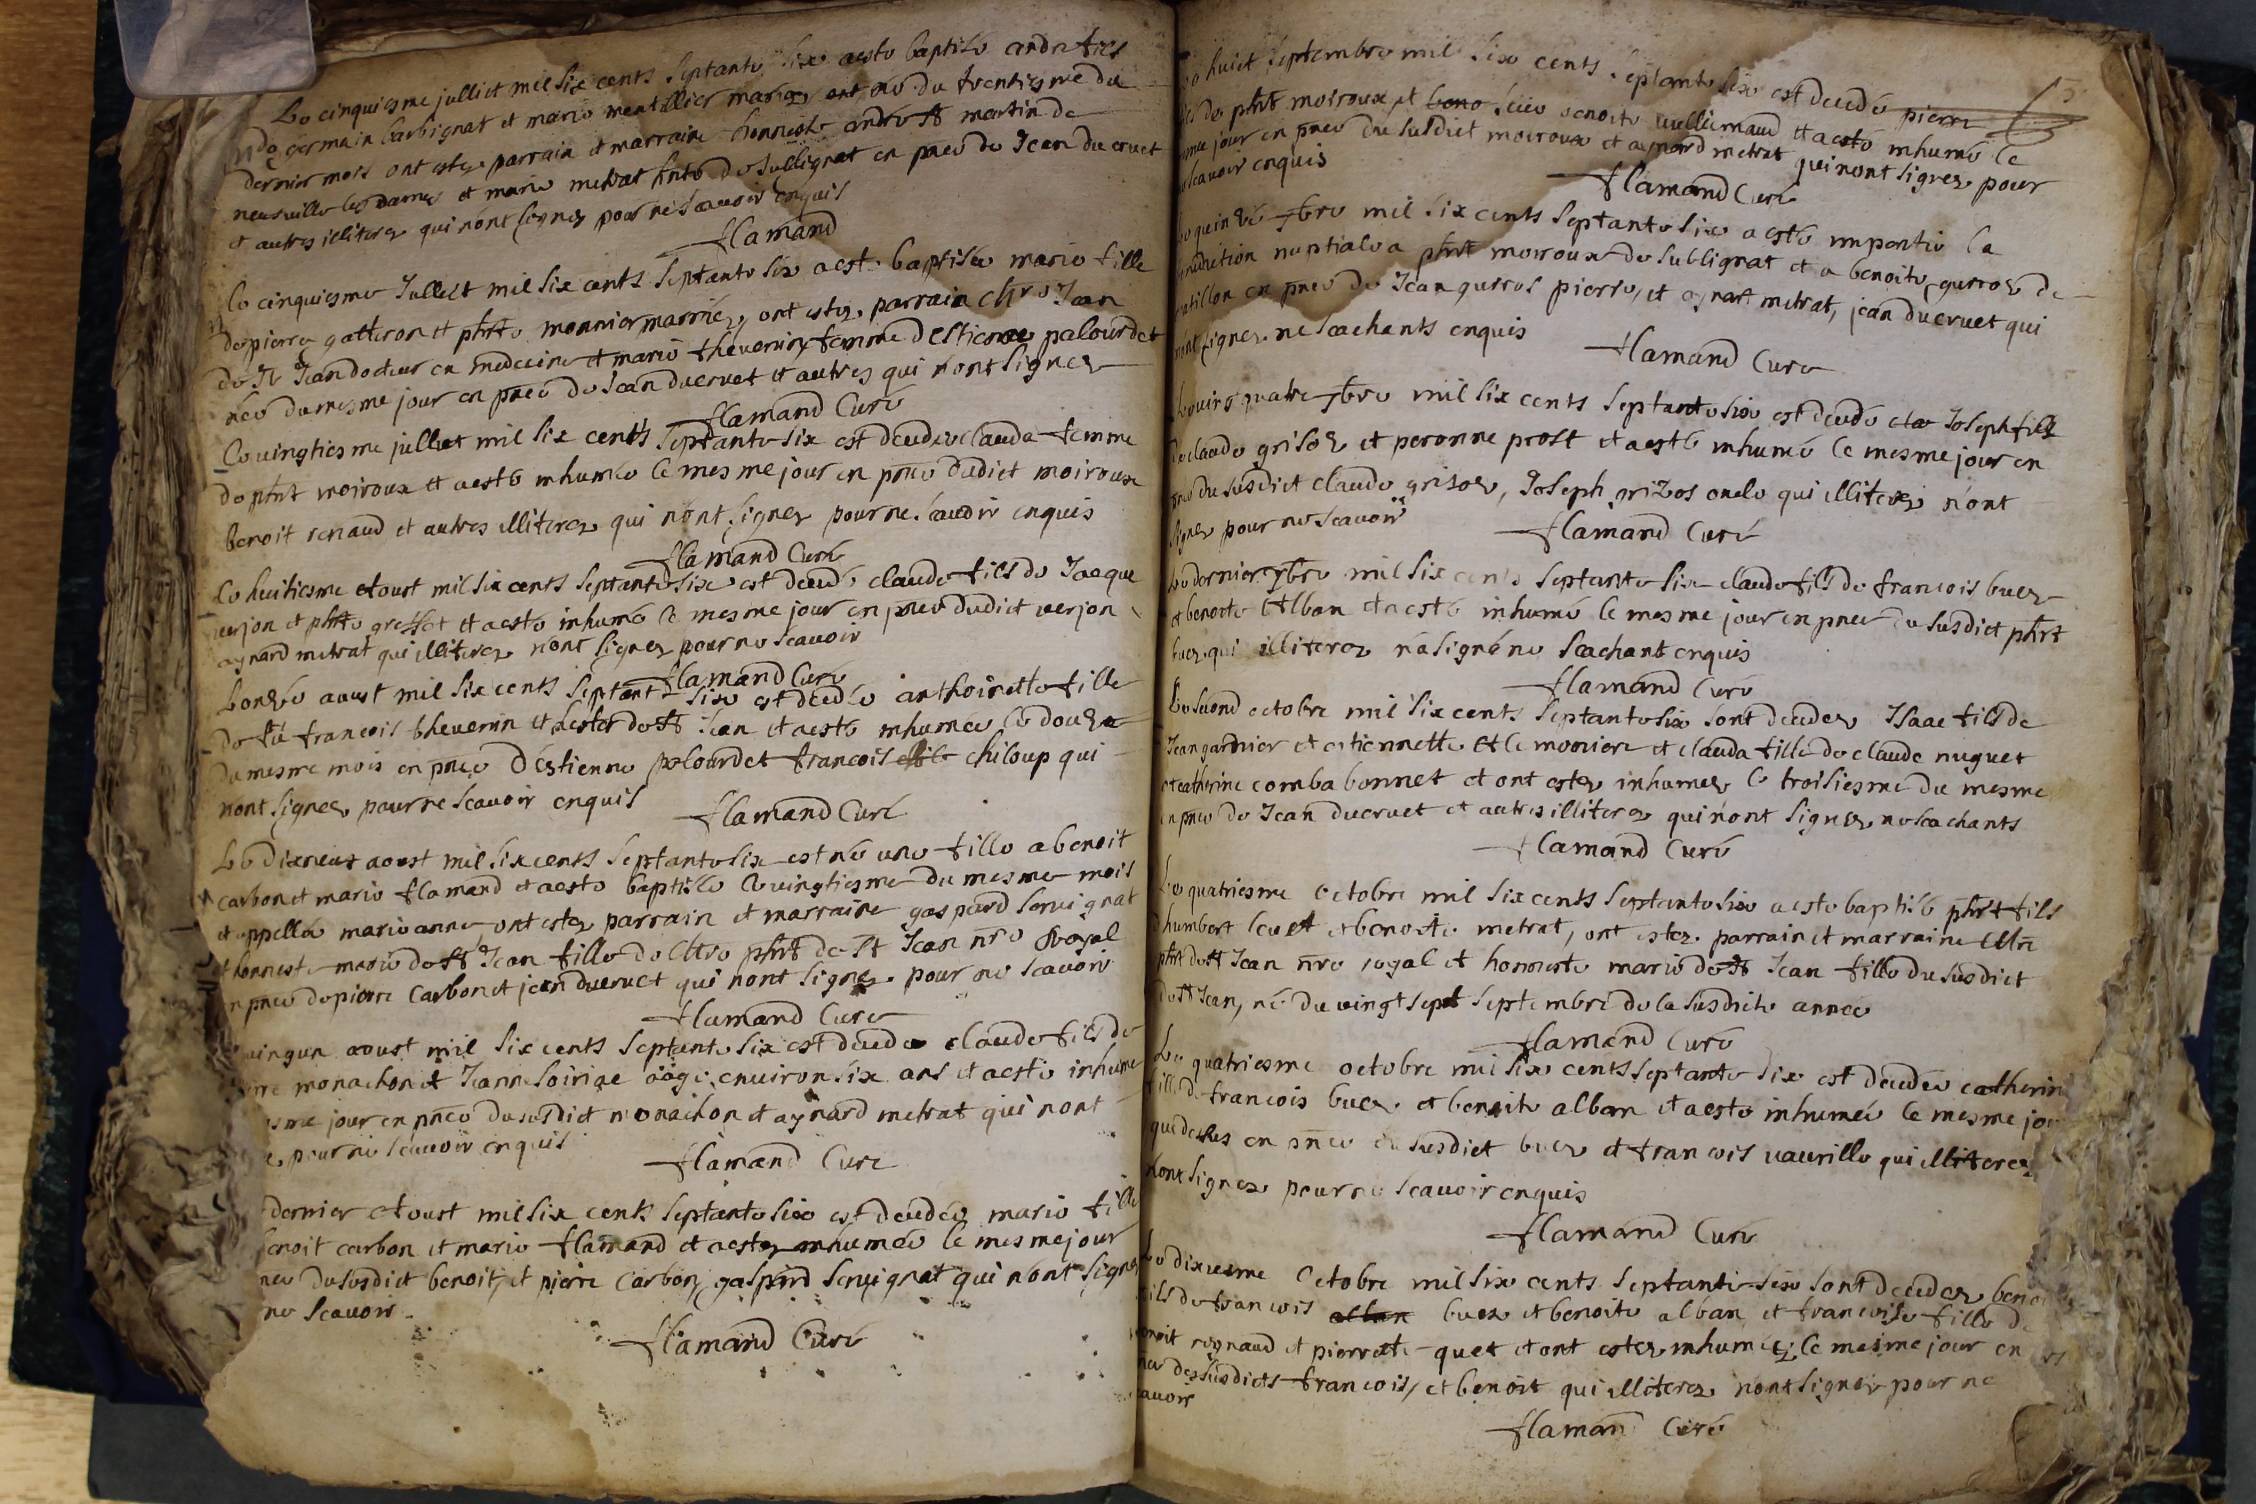 Le cinquiesme julliet mil six cents septante six a esté baptisé andre fils
de germain barbignat et marie mentillier mariez né du trentiesme du
dernier mois ont estez parrain et marraine honneste andre st martin de
neusville les dames et marie metrat hnte de sullignat en pnce de Jean ducruet
et autres illiterez qui n'ont signez pour ne scavoir enquis
flamand
le cinquiesme Julliet mil six cents septante six a esté baptisée marie fille
de pierre gatteron et phte monnier marriez, ont estez parrain Jean
de st Jean docteur en medecine et marie thevenin femme d'Estienne palourdet
née du mesme jour en pnce de Jean ducruet et autres qui n'ont signez
flamand Curé
Le vingtiesme julliet mil six cents septante six est decedée clauda femme
de phrt moiroux et a esté inhumée le mesme jour en pnce dudict moiroux
benoit renaud et autres illiterez qui n'ont signez pour ne scavoir enquis
flamand Curé
Le huitiesme Aoust mil six cents septante six est decedé claude fils de Jacque
verjon et phte greffet et a esté inhumé le mesme jour en pnce dudict verjon
aynard metrat qui illiterez n'ont signez pour ne scavoir
flamand Curé
L'onzé aoust mil six cents septante six est decedée anthoinette fille
de fû francois thevenin et hester de st Jean et a esté inhumée le douze
du mesme mois en pnce d'éstienne palourdet francois chiloup qui
n'ont signez pour ne scavoir enquis
flamand Curé
Le dixneuf aoust mil six cents septante six est née une fille a benoit
carbon et marie flamand et a esté baptisée le vingtiesme du mesme mois
et appellée marie anne ont estez parrain et marraine gaspard servignat
et honneste marie de st Jean fille de Mre phrt de st Jean nre Royal
en pnce de pierre carbon et jean ducruet qui n'ont signez pour ne scavoir
flamand Curé
vingun aoust mil six cents septante six est decedé claude fils de
monachon et Jeanne aagé environ six ans et a esté inhumé
jour en pnce du susdict monachon et aynard metrat qui n'ont
pour ne scavoir enquis
flamand Curé
dernier Aoust mil six cents septante six est decedée marie fille
benoit carbon et marie flamand et a estez inhumée le mesme jour
du susdict benoit, et pierre carbon, gaspard servignat qui n'ont signez
ne scavoir
flamand Curé
huict septembre mil six cents septante six est decedé pierre
de phrt moiroux et benoite vuillermaud et a esté inhumé le
jour en pnce du susdict moiroux et aynard metrat qui n'ont signez pour
scavoir enquis
flamand Curé
Le quinzé 7bre mil six cents septante six a esté impartie la
benediction nuptiale a phrt moiroux de sublignat et a benoite gurros de
chatillon en pnce de Jean gurros pierre, et aynart metrat, jean ducruet qui
n'ont signez ne scachants enquis
flamand Curé
quatre 7bre mil six cents septante six est decedé Joseph fils
de claude grisoz et peronne prost et a esté inhumé le mesme jour en
pnce du susdict claude grisoz, Joseph grizos oncle qui illiterez n'ont
signez pour ne scavoir
flamand Curé
Le dernier 7bre mil six cents septante six claude fils de francois buez
et benoite Alban et a esté inhumé le mesme jour en pnce du susdict phrt
buez qui illiterez n'a signé ne scachant enquis
flamand Curé
Le second octobre mil six cents septante six sont decedez Isaac fils de
Jean gardnier et estiennette moniere et clauda fille de claude nuguet
et catherine comba bonnet et ont estez inhumez le troisiesme du mesme
en pnce de Jean ducruet et autres illiterez qui n'ont signez ne scachants
flamand Curé
Le quatriesme Octobre mil six cents septante six a esté baptisé phrt fils
d'humbert et benoite metrat, ont estez parrain et marraine Mre
phrt de st Jean nre royal et honneste marie de st Jean fille du susdict
de st Jean, né du vingt sept septembre de la susdicte année
flamand Curé
Le quatriesme octobre mil six cents septante six est decedée catherine
fille de francois buez et benoite alban et a esté inhumée le mesme jour
que dessus en pnce du susdict buez et francois vaurille qui illiterez
n'ont signez pour ne scavoir enquis
flamand Curé
Le dixiesme Octobre mil six cents septante six sont decedez
fils de francois alban buez et benoite alban et francoise fille de
benoit regnaud et pierrette quet et ont estez inhumez le mesme jour en
des susdicts francois, et benoit qui illiterez n'ont signez pour ne
scavoir
flamand Curé